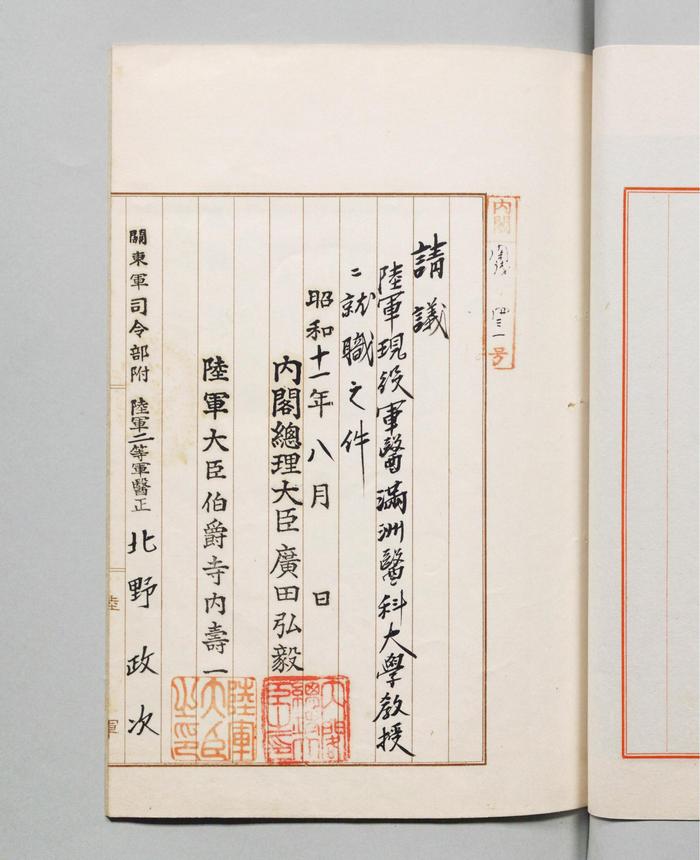 内閣 四三一 号
請議
陸軍現役軍醫滿洲醫科大學教授
ニ就職之件
昭和十一年八月 日
内閣總理大臣 廣田弘毅
内閣總理大臣之印
陸軍大臣伯爵寺内壽一
陸軍大臣之印
關東軍司令部附 陸軍二等軍醫正 北野政次
陸軍